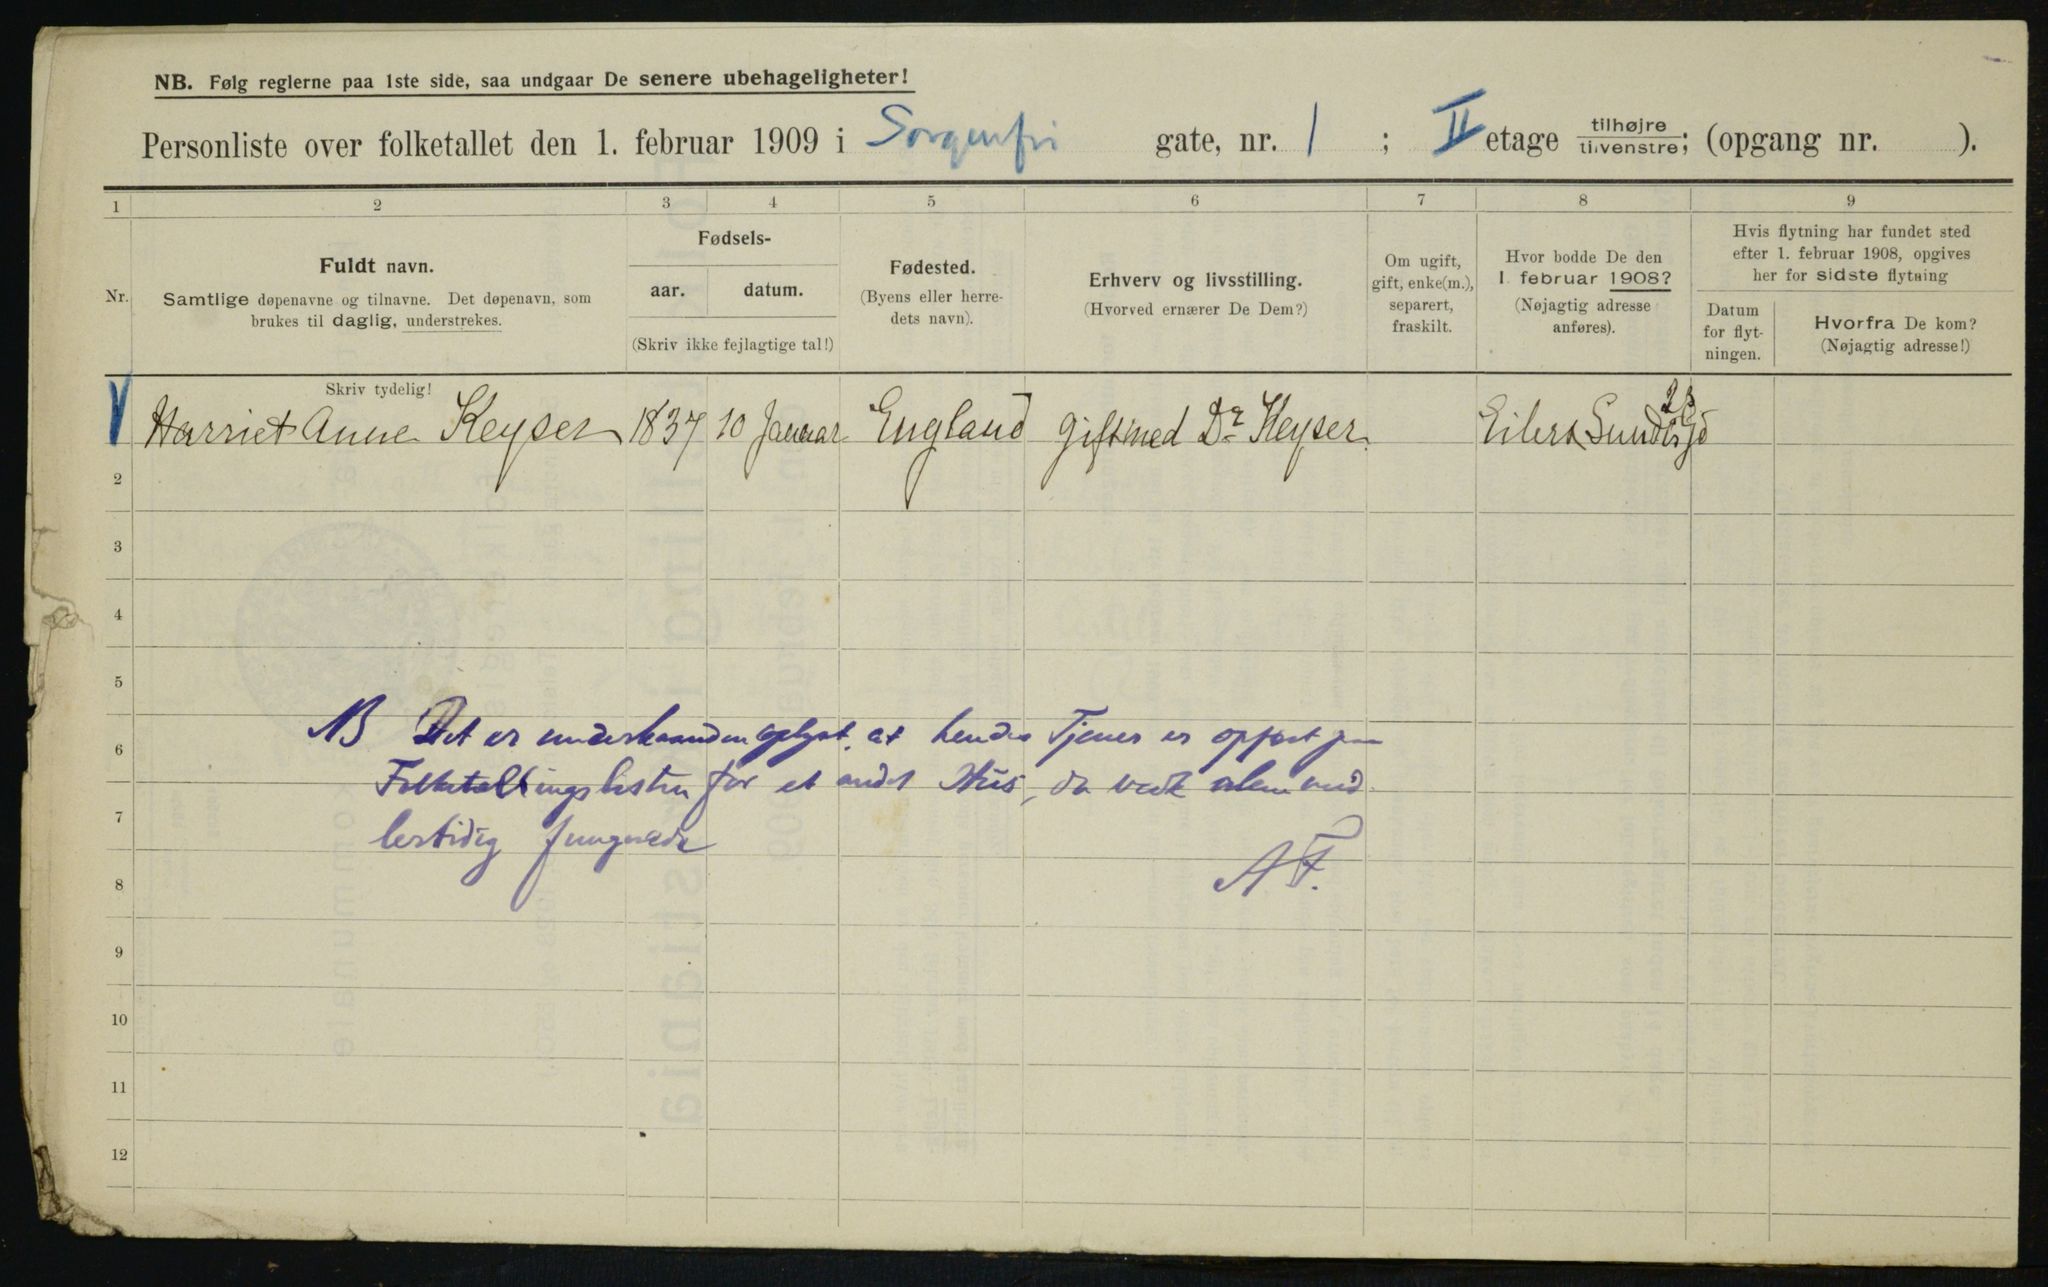 NB. Følg reglerne paa 1ste side, saa undgaar De senere ubehageligheter!
Personliste over folketallet den 1. februar 1909 i Sorgenfri gate, nr. 1 ; II etage tilhøjre tilvenstre; (opgang nr. ).
1 2 3 4 5 6 7 8 9
Nr.
Fuldt navn.
Samtlige døpenavne og tilnavne. Det døpenavn, som
brukes til daglig, understrekes.
Skriv tydelig!
Fødsels-
aar. datum.
(Skriv ikke fejlagtige tal!)
Fødested.
(Byens eller herre-
dets navn).
Erhverv og livsstilling.
(Hvorved ernærer De Dem?)
Om ugift,
gift, enke(m.),
separert,
fraskilt.
Hvor bodde De den
1. februar 1908?
(Nøjagtig adresse
anføres).
Hvis flytning har fundet sted
efter 1. februar 1908, opgives
her for sidste flytning
Datum
for flyt-
ningen.
Hvorfra De kom?
(Nøjagtig adresse!)
Harriet Anne Keyser 1837 10 Januar England gift med Dr Keyser. Eilert Sundts Gd 28
2
3
4
5
NB Det er underhaanden oplyst, at hendes Tjener er opført paa
6
Folketællingslisten for et andet Hus, da
7
8
A F.
9
10
11
12